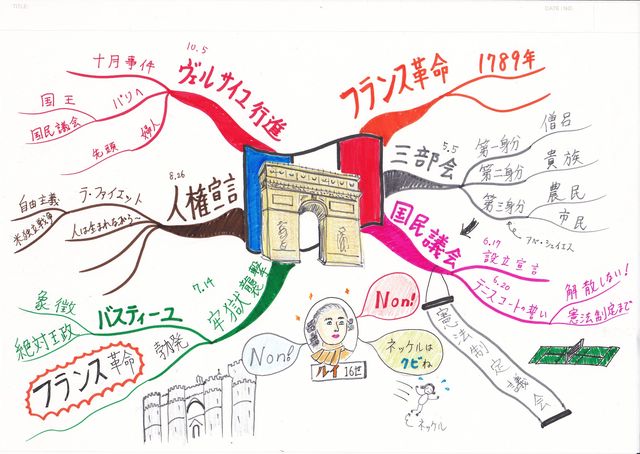 TITLE:
DATE / NO.
フランス革命
1789年
三部会
5.5
第一身分
僧侶
第二身分
貴族
第三身分
農民
市民
アベ・シェイエス
国民議会
6.17
設立宣言
6.20
テニスコートの誓い
解散しない!
憲法制定まで
憲法制定議会
牢獄襲撃
7.14
バスティーユ
象徴
絶対王政
勃発
フランス革命
人権宣言
8.26
ラ・ファイエット
自由主義
米独立戦争
人は生まれながら〜
ヴェルサイユ行進
10.5
十月事件
パリへ
国王
国民議会
婦人
先頭
Non!
Non!
ネッケルは
クビね
ルイ16世
ネッケル